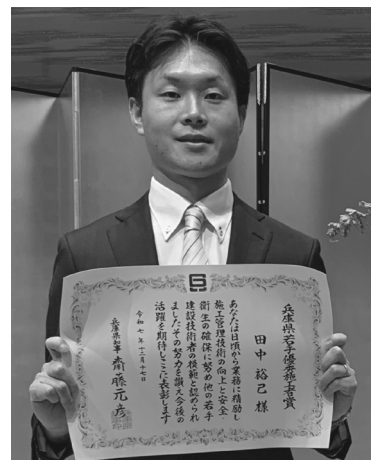 兵庫県若手優秀施工者賞
田中裕己様
あなたは日頃から業務に精励し
施工管理技術の向上と安全
衛生の確保に努め他の若手
建設技術者の模範と認められ
ましたその努力を讃え今後の
活躍を期待しここに表彰します
令和七年十二月十七日
兵庫県知事 齋藤元彦